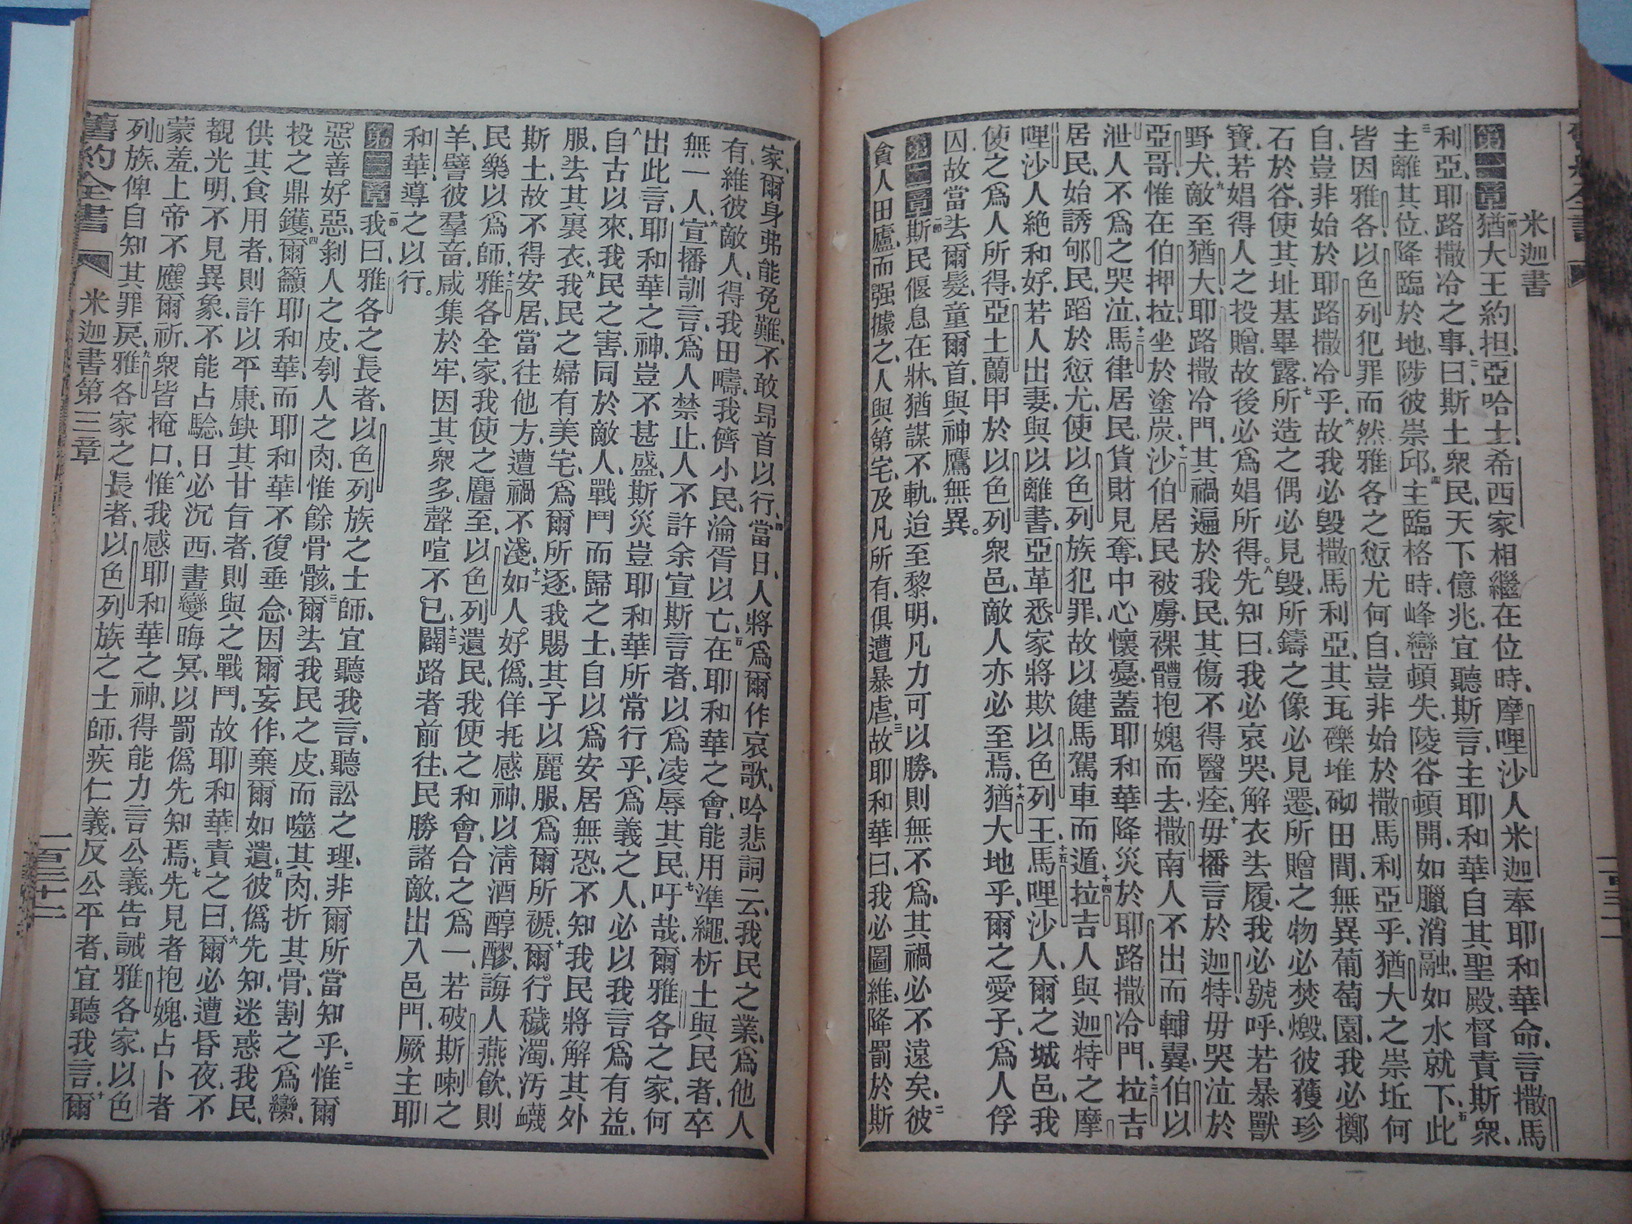 米迦書
第一章猶大王約担亞哈士希西家相繼在位時摩哩沙人米迦奉耶和華命言撒馬
利亞耶路撒冷之事曰斯土衆民天下億兆宜聽斯言主耶和華自其聖殿督責斯衆
主離其位降臨於地陟彼崇邱主臨格時峰巒頓失陵谷頓開如臘消融如水就下此
皆因雅各以色列犯罪而然雅各之愆尤何自豈非始於撒馬利亞乎猶大之崇坵何
自豈非始於耶路撒冷乎故我必毁撒馬利亞其瓦礫堆砌田間無異葡萄園我必擲
石於谷使其址基畢露所造之偶必見毁所鑄之像必見遷所贈之物必焚燬彼獲珍
寶若娼得人之投贈故後必爲娼所得先知曰我必哀哭解衣去履我必號呼若暴獸
野犬敵至猶大耶路撒冷門其禍遍於我民其傷不得醫痊毋播言於迦特毋哭泣於
亞哥惟在伯押拉坐於塗炭沙伯居民被虜裸體抱媿而去撒南人不出而輔翼伯以
泄人不爲之哭泣馬律居民貨財見奪中心懷憂蓋耶和華降災於耶路撒冷門拉吉
居民始誘郇民蹈於愆尤使以色列族犯罪故以健馬駕車而遁拉吉人與迦特之摩
哩沙人絶和好若人出妻與以離書亞革悉家將欺以色列王馬哩沙人爾之城邑我
使之爲人所得亞土蘭甲於以色列衆邑敵人亦必至焉猶大地乎爾之愛子爲人俘
囚故當去爾髮童爾首與神鷹無異。
第二章斯民偃息在牀猶謀不軌迨至黎明凡力可以勝則無不爲其禍必不遠矣彼
貪人田廬而强據之人與第宅及凡所有俱遭暴虐故耶和華曰我必圖維降罰於斯
家爾身弗能免難不敢昂首以行當日人將爲爾作哀歌吟悲詞云我民之業爲他人
有維彼敵人得我田疇我儕小民淪胥以亡在耶和華之會能用準繩析土與民者卒
無一人宣播訓言爲人禁止人不許余宣斯言者以爲凌辱其民吁哉爾雅各之家何
出此言耶和華之神豈不甚盛斯災豈耶和華所常行乎爲義之人必以我言爲有益
自古以來我民之害同於敵人戰鬥而歸之士自以爲安居無恐不知我民將解其外
服去其裏衣我民之婦有美宅爲爾所逐我賜其子以麗服爲爾所褫爾行穢濁汚衊
斯土故不得安居當往他方遭禍不淺如人好僞佯托感神以淸酒醇醪誨人燕飮則
民樂以爲師雅各全家我使之麕至以色列遺民我使之和會合之爲一若破斯喇之
羊譬彼羣音咸集於牢因其衆多聲喧不已闢路者前往民勝諸敵出入邑門厥主耶
和華導之以行。
第三章我曰雅各之長者以色列族之士師宜聽我言聽訟之理非爾所當知乎惟爾
惡善好惡剝人之皮刳人之肉惟餘骨骸爾去我民之皮而噬其肉折其骨割之爲臠
投之鼎鑊爾籲耶和華而耶和華不復垂念因爾妄作棄爾如遺彼僞先知迷惑我民
供其食用者則許以平康缺其甘旨者則與之戰鬥故耶和華責之曰爾必遭昏夜不
覩光明不見異象不能占騐日必沉西晝變晦冥以罰僞先知焉先見者抱媿占卜者
蒙羞上帝不應爾祈衆皆掩口惟我感耶和華之神得能力言公義告誡雅各家以色
列族俾自知其罪戾雅各家之長者以色列族之士師疾仁義反公平者宜聽我言爾
舊約全書 米迦書第三章 一百三十二